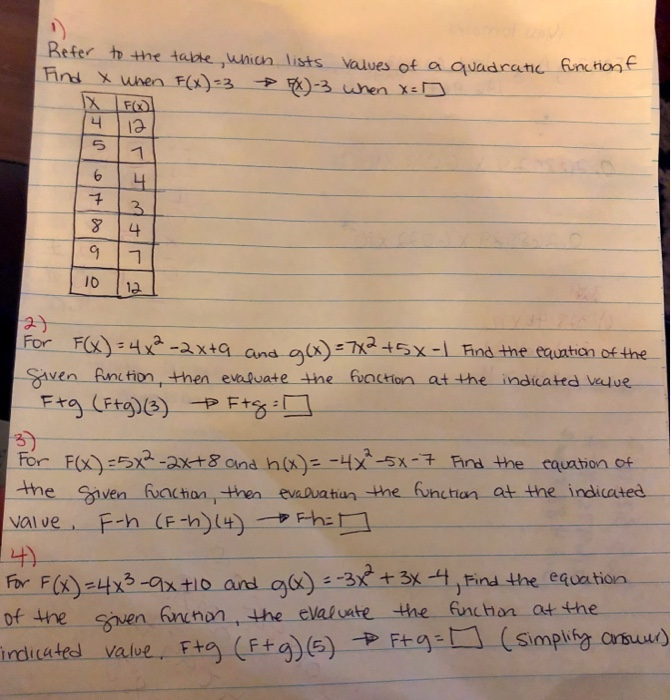 1)
Refer to the table, which lists values of a quadratic function f
Find x when F(x)=3 → F(x)-3 when x=□
X F(x)
4 12
5 7
6 4
7 3
8 4
9 7
10 12
2)
For F(x)=4x²-2x+9 and g(x)=7x²+5x-1 Find the equation of the
given function, then evaluate the function at the indicated value
F+g (F+g)(3) → F+g=□
3)
For F(x)=5x²-2x+8 and h(x)=-4x²-5x-7 Find the equation of
the given function, then evaluation the function at the indicated
value. F-h (F-h)(4) → F-h=□
4)
For F(x)=4x³-9x+10 and g(x)=-3x²+3x-4, Find the equation
of the given function, the evaluate the function at the
indicated value. F+g (F+g)(5) → F+g=□ (simplify answer)